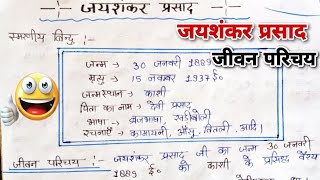 जयशंकर प्रसाद
जयशंकर प्रसाद
जीवन परिचय
स्मरणीय बिन्दु
जन्म - 30 जनवरी 1889
मृत्यु - 15 नवम्बर 1937 ई०
जन्मस्थान - काशी
पिता का नाम - देवी प्रसाद
भाषा - ब्रजभाषा, खड़ीबोली
रचनाएँ - कामायनी, आँसू, तितली, आदि।
जीवन परिचय - जयशंकर प्रसाद जी का जन्म 30 जनवरी
1889 ई० को काशी के प्रसिद्ध वैश्य